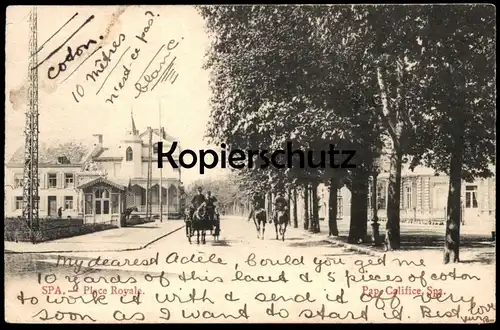 coton.
10 mètres
n'est ce pas?
blanc
Kopierschutz
My dearest Adèle, Could you get me
10 yards of this lace & 5 pieces of cotton
SPA. — Place Royale.
Pap. Califice, Spa.
to work it with & send it off very
soon as I want to start it. Best love